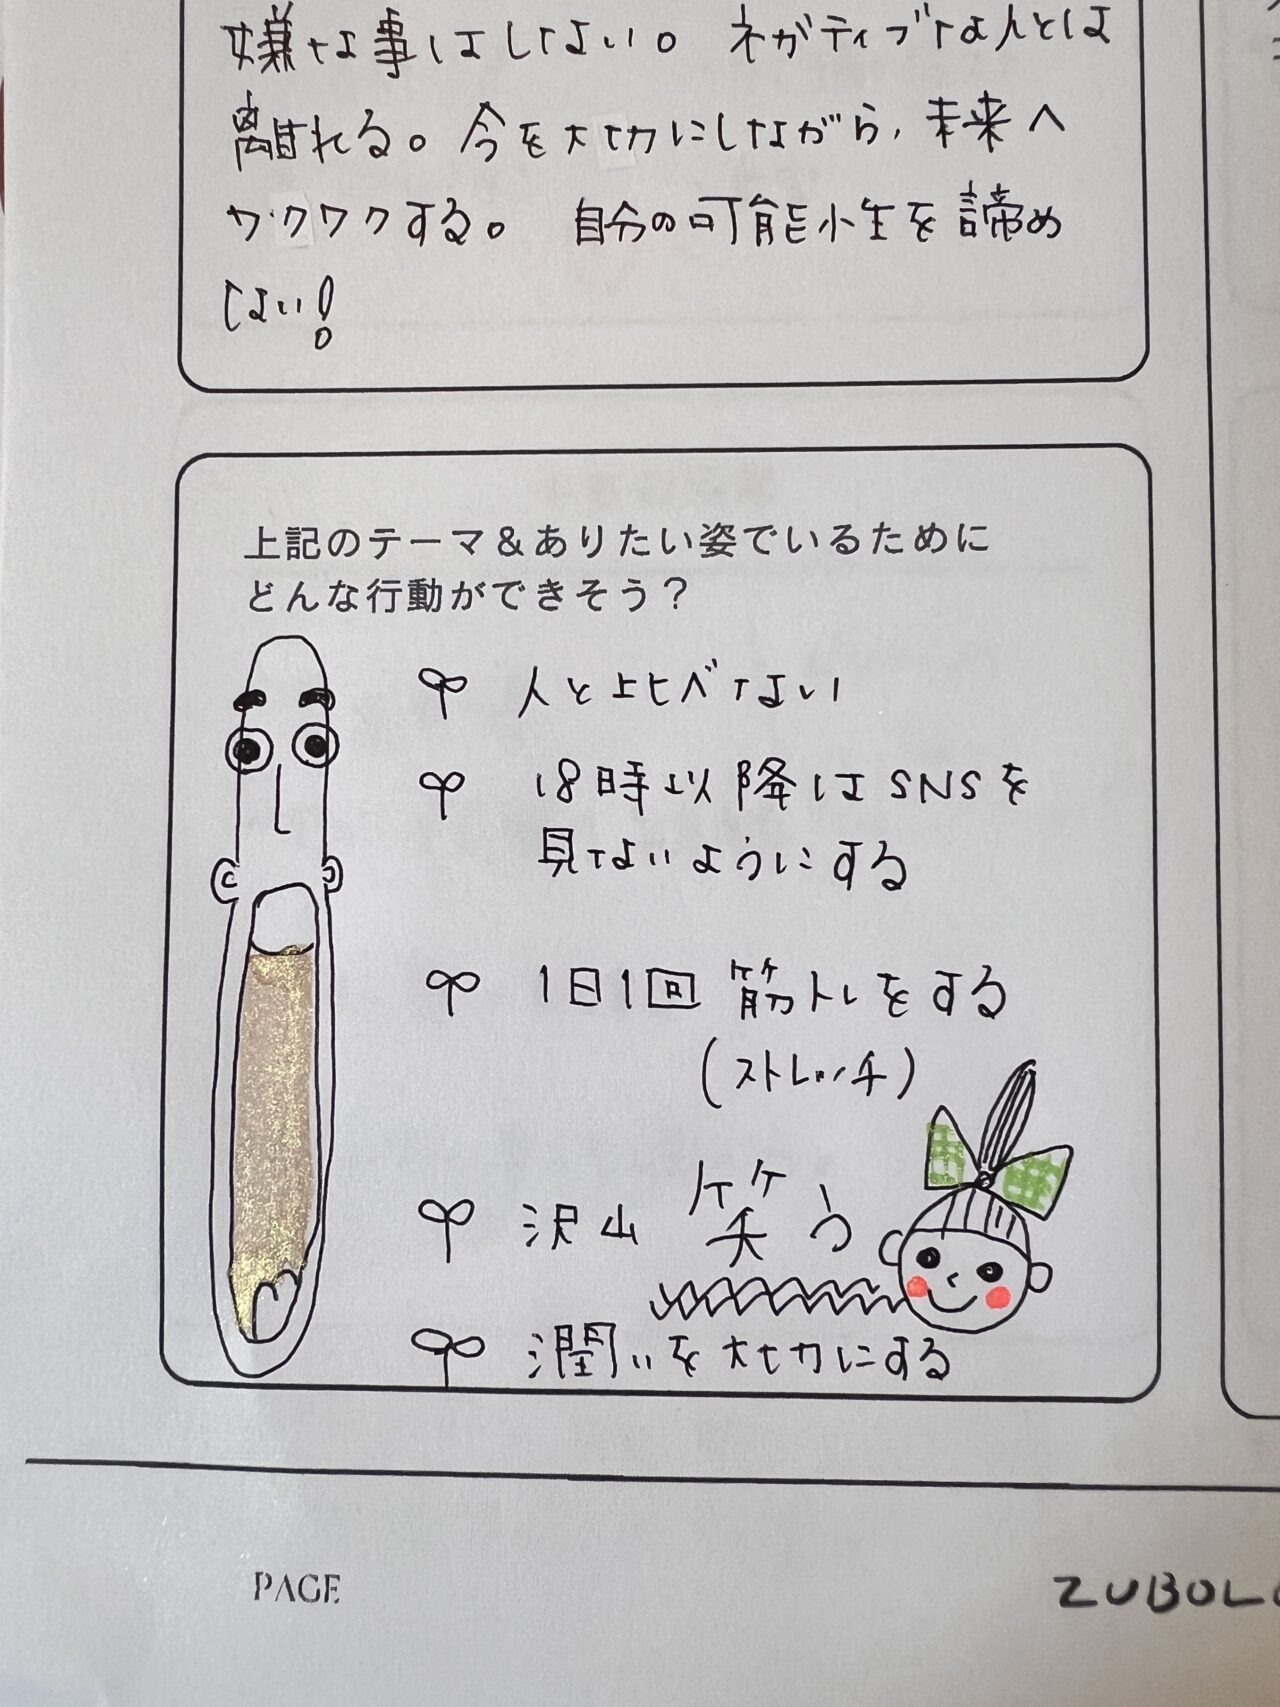 嫌な事はしない。ネガティブな人とは
離れる。今を大切にしながら、未来へ
ワクワクする。自分の可能性を諦め
ない!
上記のテーマ&ありたい姿でいるために
どんな行動ができそう?
人と比べない
18時以降はSNSを
見ないようにする
1日1回 筋トレをする
(ストレッチ)
沢山 笑う
潤いを大切にする
PAGE